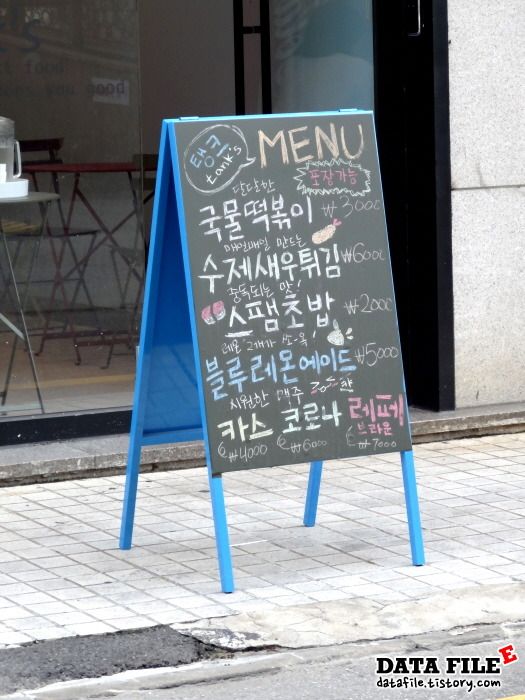 탱크
tank's
MENU
포장가능
달달한
국물떡볶이 ₩3000
매일매일 만드는
수제새우튀김 ₩6000
중독되는 맛!
스팸초밥 ₩2000
레몬 2개가 쏘-옥!
블루레몬에이드 ₩5000
시원한 맥주
카스 코로나 레페
브라운
₩4000 ₩6000 ₩7000
DATA FILE E
datafile.tistory.com